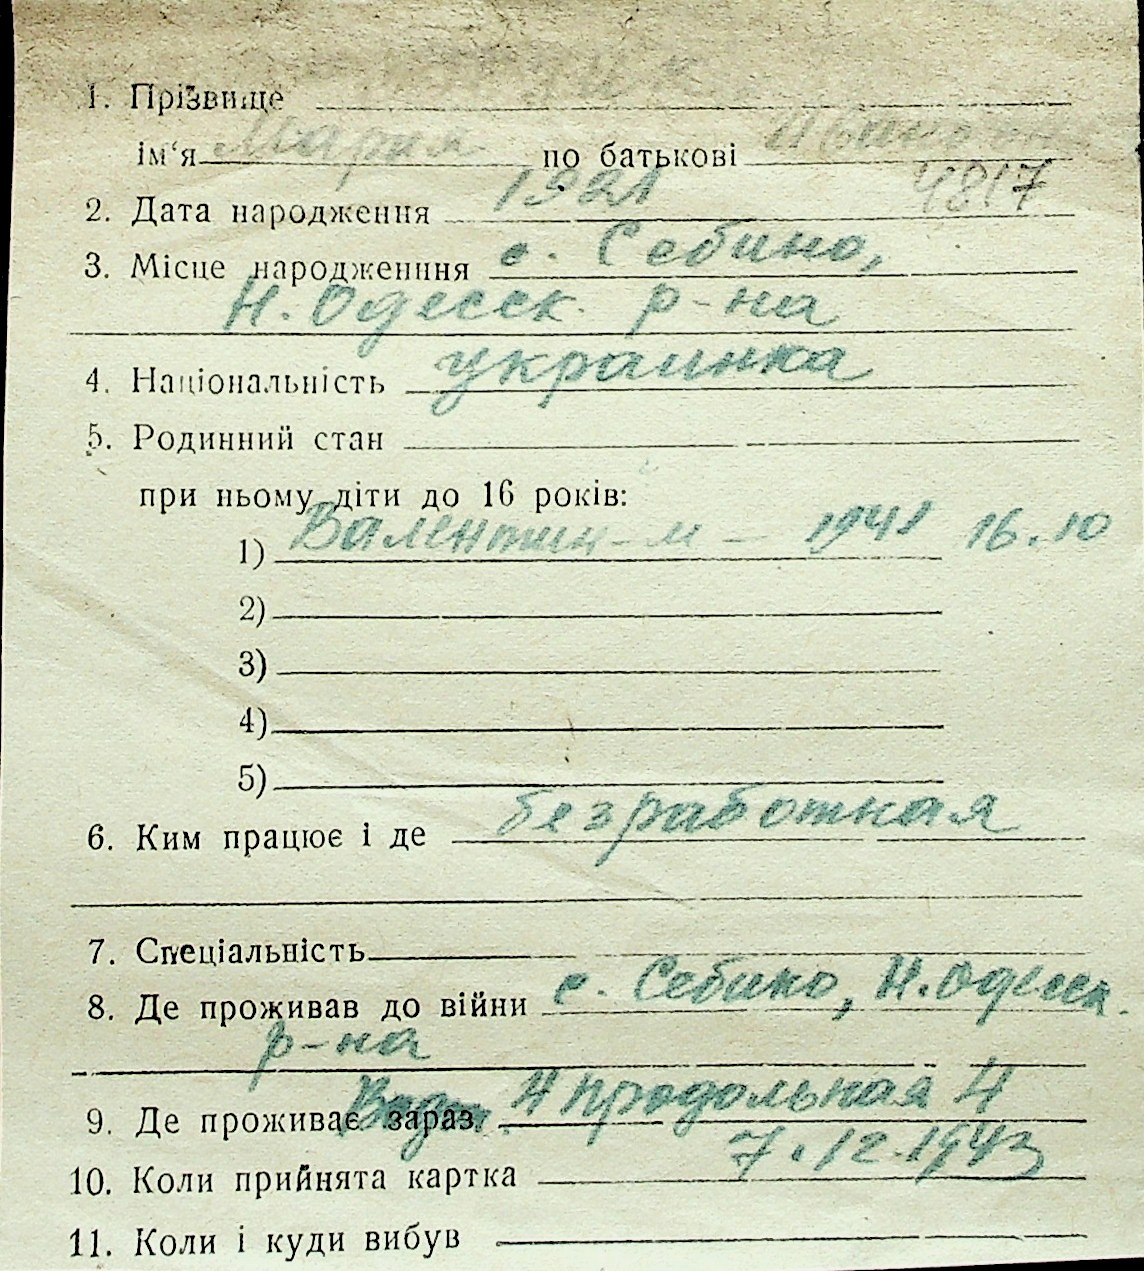 1. Прізвище
ім'я Мария по батькові Ивановна
4817
2. Дата народження 1921
3. Місце народженння с. Себино,
Н. Одесск. р-на
4. Національність украинка
5. Родинний стан
при ньому діти до 16 років:
1) Валентин - м - 1941 16.10
2)
3)
4)
5)
6. Ким працює і де безработная
7. Спеціальність
8. Де проживав до війни с. Себино, Н. Одесск.
р-на
9. Де проживає зараз 4 продольная 4
10. Коли прийнята картка 7.12.1943
11. Коли і куди вибув